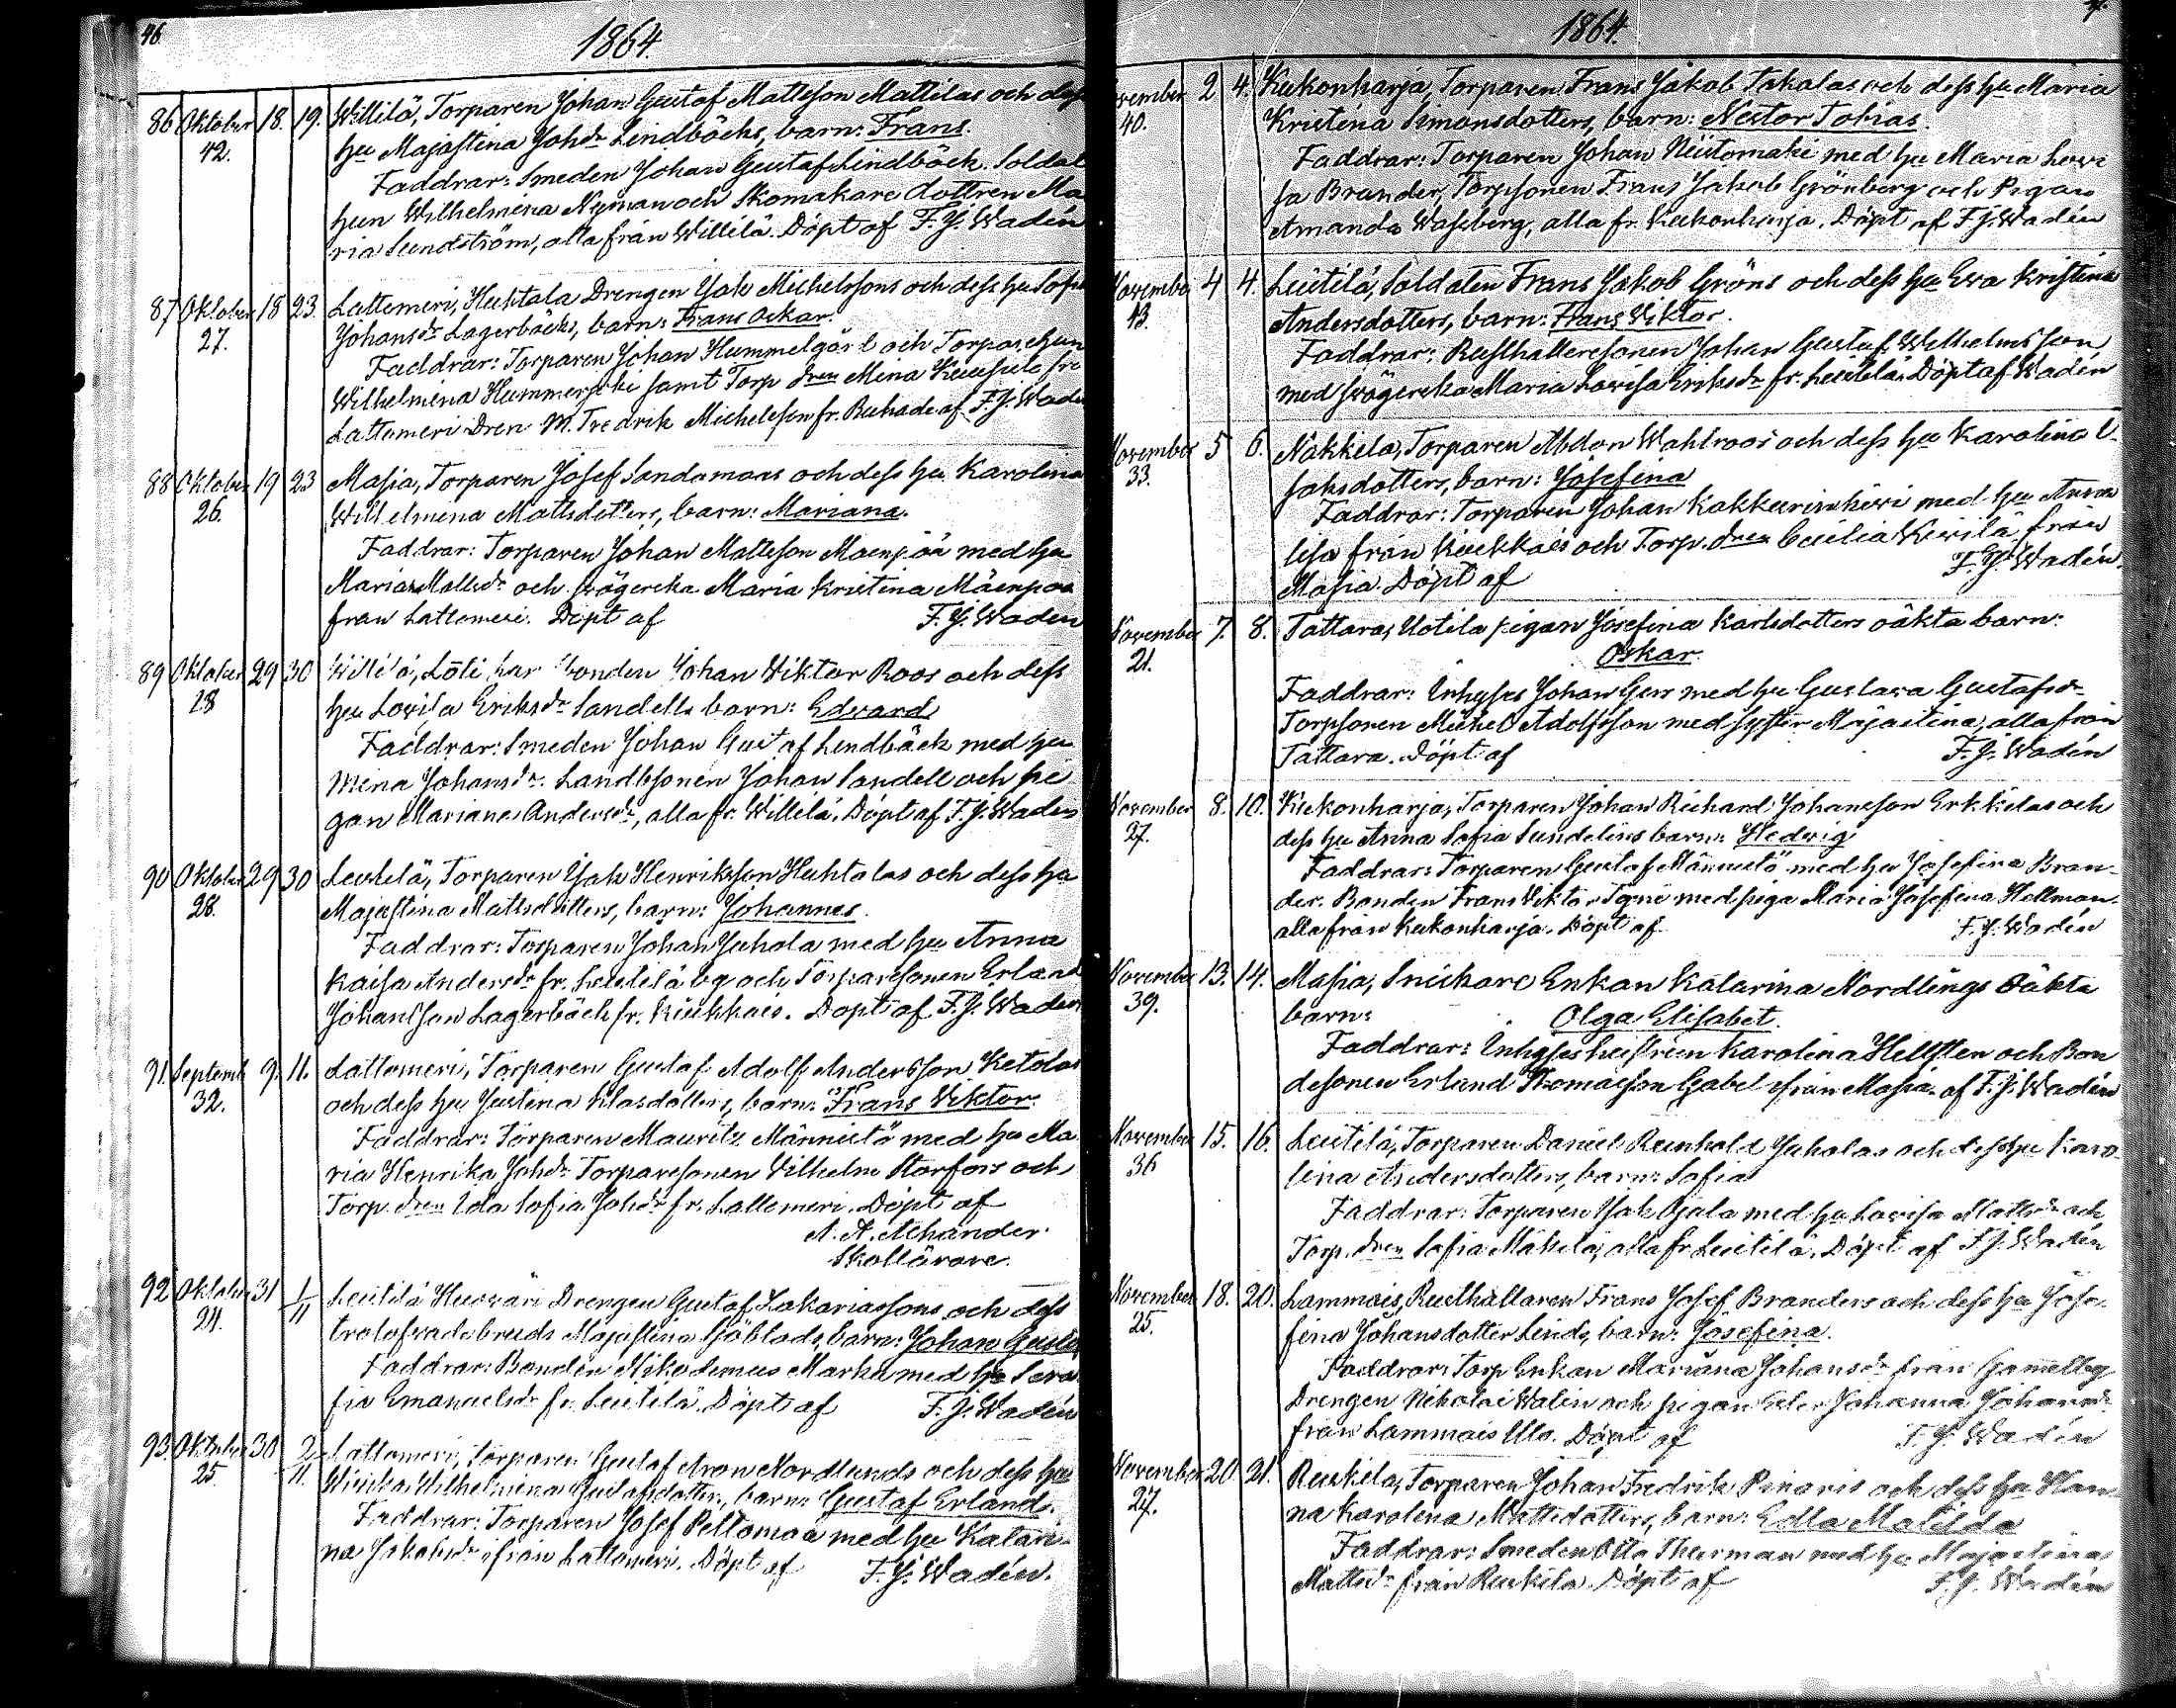 46.
1864.
86 Oktober 18. 19. Willilä, Torparen Johan Gustaf Mattsson Mattilas och dess
42. hu Majastina Johdr Lindbäcks, barn: Frans.
Faddrar: Smeden Johan Gustaf Lindbäck. Soldat
hun Wilhelmina Nyman och Skomakare dottren Ma
ria Sundström, alla från Willilä. Döpt af F. J. Wadén
87 Oktober 18 23. Lattomeri, Huhtala Drengen Isak Michelssons och dess hu Sofia
27. Johansdr Lagerbäcks, barn: Frans Oskar.
Faddrar: Torparen Johan Hummelgård och Torpare hun
Wilhelmina Hummer samt Torp dren Mina från
Lattomeri Dren M. Fredrik Michelsson fr. af F. J. Wadén
88 Oktober 19 23 Masia, Torparen Josef Sandamaas och dess hu Karolina
26. Wilhelmina Mattsdotters, barn: Mariana.
Faddrar: Torparen Johan Mattsson Maenpää med hu
Maria Mattsdr och swägerska Maria Kristina Mäenpää
från Lattomeri. Döpt af F. J. Wadén
89 Oktober 29 30 Willilä, bonden Johan Viktor Roos och dess
28 hu Lovisa Eriksdr Sandells barn: Edvard
Faddrar: Smeden Johan Gustaf Lindbäck med hu
Mina Johansdr. Landbsonen Johan Sandell och pi
gan Mariana Andersdr, alla fr. Willilä. Döpt af F. J. Wadén
90 Oktober 29 30 Leistilä, Torparen Isak Henriksson Huhtalas och dess hu
28. Majastina Mattsdotters, barn: Johannes.
Faddrar: Torparen Johan Juhola med hu Anna
Kaisa Andersdr fr. Leistilä by och Torparesonen Erland
Johansson Lagerbäck fr. Kiukkais. Döpt af F. J. Wadén
91. Septemb 9. 11. Lattomeri, Torparen Gustaf Adolf Andersson Ketolas
32. och dess hu Justina Klasdotters, barn: Frans Viktor.
Faddrar: Torparen Mauritz Männistö med hu Ma
ria Henrika Johdr Torparesonen Vilhelm Storfors och
Torp. dren Ida Sofia Johdr fr. Lattomeri. Döpt af
A. A. Alhander.
Skollärare.
92 Oktober 31 1/11 Leistilä Drengen Gustaf Zakariassons och dess
24. trolofvade brud Majastina Sjöblads, barn: Johan Gustaf
Faddrar: Bonden Nikodemus Marku med hu Sera
fia Emanuelsdr fr. Leistilä. Döpt af F. J. Wadén
93. Oktober 30 2/11. Lattomeri, Torparen Gustaf Aron Nordlunds och dess hu
25. Wilhelmina Gustafsdotters, barn: Gustaf Erland.
Faddrar: Torparen Josef Peltomaa med hu Katari
na Jakobsdr ifrån Lattomeri. Döpt af F. J. Wadén.
1864.
November 2 4. Kukonharja, Torparen Frans Jakob Takalas och dess hu Maria
40. Kristina Simonsdotters, barn: Nestor Tobias.
Faddrar: Torparen Johan Niitomaki med hu Maria Lovi
sa Brander, Torpsonen Frans Jakob Grönberg och Pigan
Amanda Wassberg, alla fr. Kukonharja. Döpt af F. J. Wadén
November 4 4. Leistilä, Soldaten Frans Jakob Gröns och dess hu Eva Kristina
43. Andersdotters, barn: Frans Viktor.
Faddrar: Rusthallaresonen Johan Gustaf Wilhelmsson
med swägerska Maria Lovisa Eriksdr fr. Leistilä. Döpt af Wadén
November 5 6. Nakkila, Torparen Abdon Wahlroos och dess hu Karolina I
33. saksdotters, barn: Josefina
Faddrar: Torparen Johan Kakkurinkivi med hu Anna
lisa från Kiukkais och Torp. dren Cecilia från
Masia. Döpt af F. J. Wadén.
November 7. 8. Tattara, Uotila pigan Josefina Karlsdotters oäkta barn:
21. Oskar.
Faddrar: Inhyses Johan Gers med hu Gustava Gustafsdr
Torpsonen Michel Adolfsson med syster Majastina, alla från
Tattara. Döpt af F. J. Wadén
November 8. 10. Kukonharja, Torparen Johan Richard Johansson Erkkilas och
27. dess hu Anna Sofia Sundelins barn: Hedvig
Faddrar: Torparen Gustaf Männistö med hu Josefina Bran-
der. Bonden Frans Viktor med piga Maria Josefina Hellman.
alla från Kukonharja. Döpt af F. J. Wadén
November 13. 14. Masia, Snickare Enkan Katarina Nordlings Oäkta
39. barn: Olga Elisabet.
Faddrar: Inhyses hustrun Karolina Hellsten och Bon
desonen Erland Thomasson Gabel ifrån Masia. af F. J. Wadén
November 15. 16. Leistilä, Torparen Daniel Reinhold Juholas och dess hu Karo-
36 lina Andersdotters, barn: Sofia
Faddrar: Torparen Isak Ojala med hu Lovisa Mattsdr och
Torp. dren Sofia Mäkelä, alla fr. Leistilä. Döpt af F. J. Wadén
November 18. 20. Lammais, Rusthållaren Frans Josef Branders och dess hu Jose-
25. fina Johansdotter Linds, barn: Josefina.
Faddrar: Torp Enkan Mariana Johansdr från Gammelby
Drengen Nikolai Walin och pigan Johanna Johansdr
från Lammais Döpt af F. J. Wadén
November 20. 21. Ruskila, Torparen Johan Fredrik och dess hu Han
27. na Karolina Mattsdotters, barn: Edla Matilda
Faddrar: Smeden Otto Thurman med hu Majastina
Mattsdr från Ruskila. Döpt af F. J. Wadén